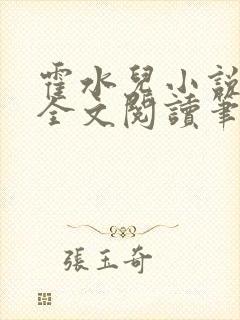 霍水兒小說
全文閱讀筆
張玉奇